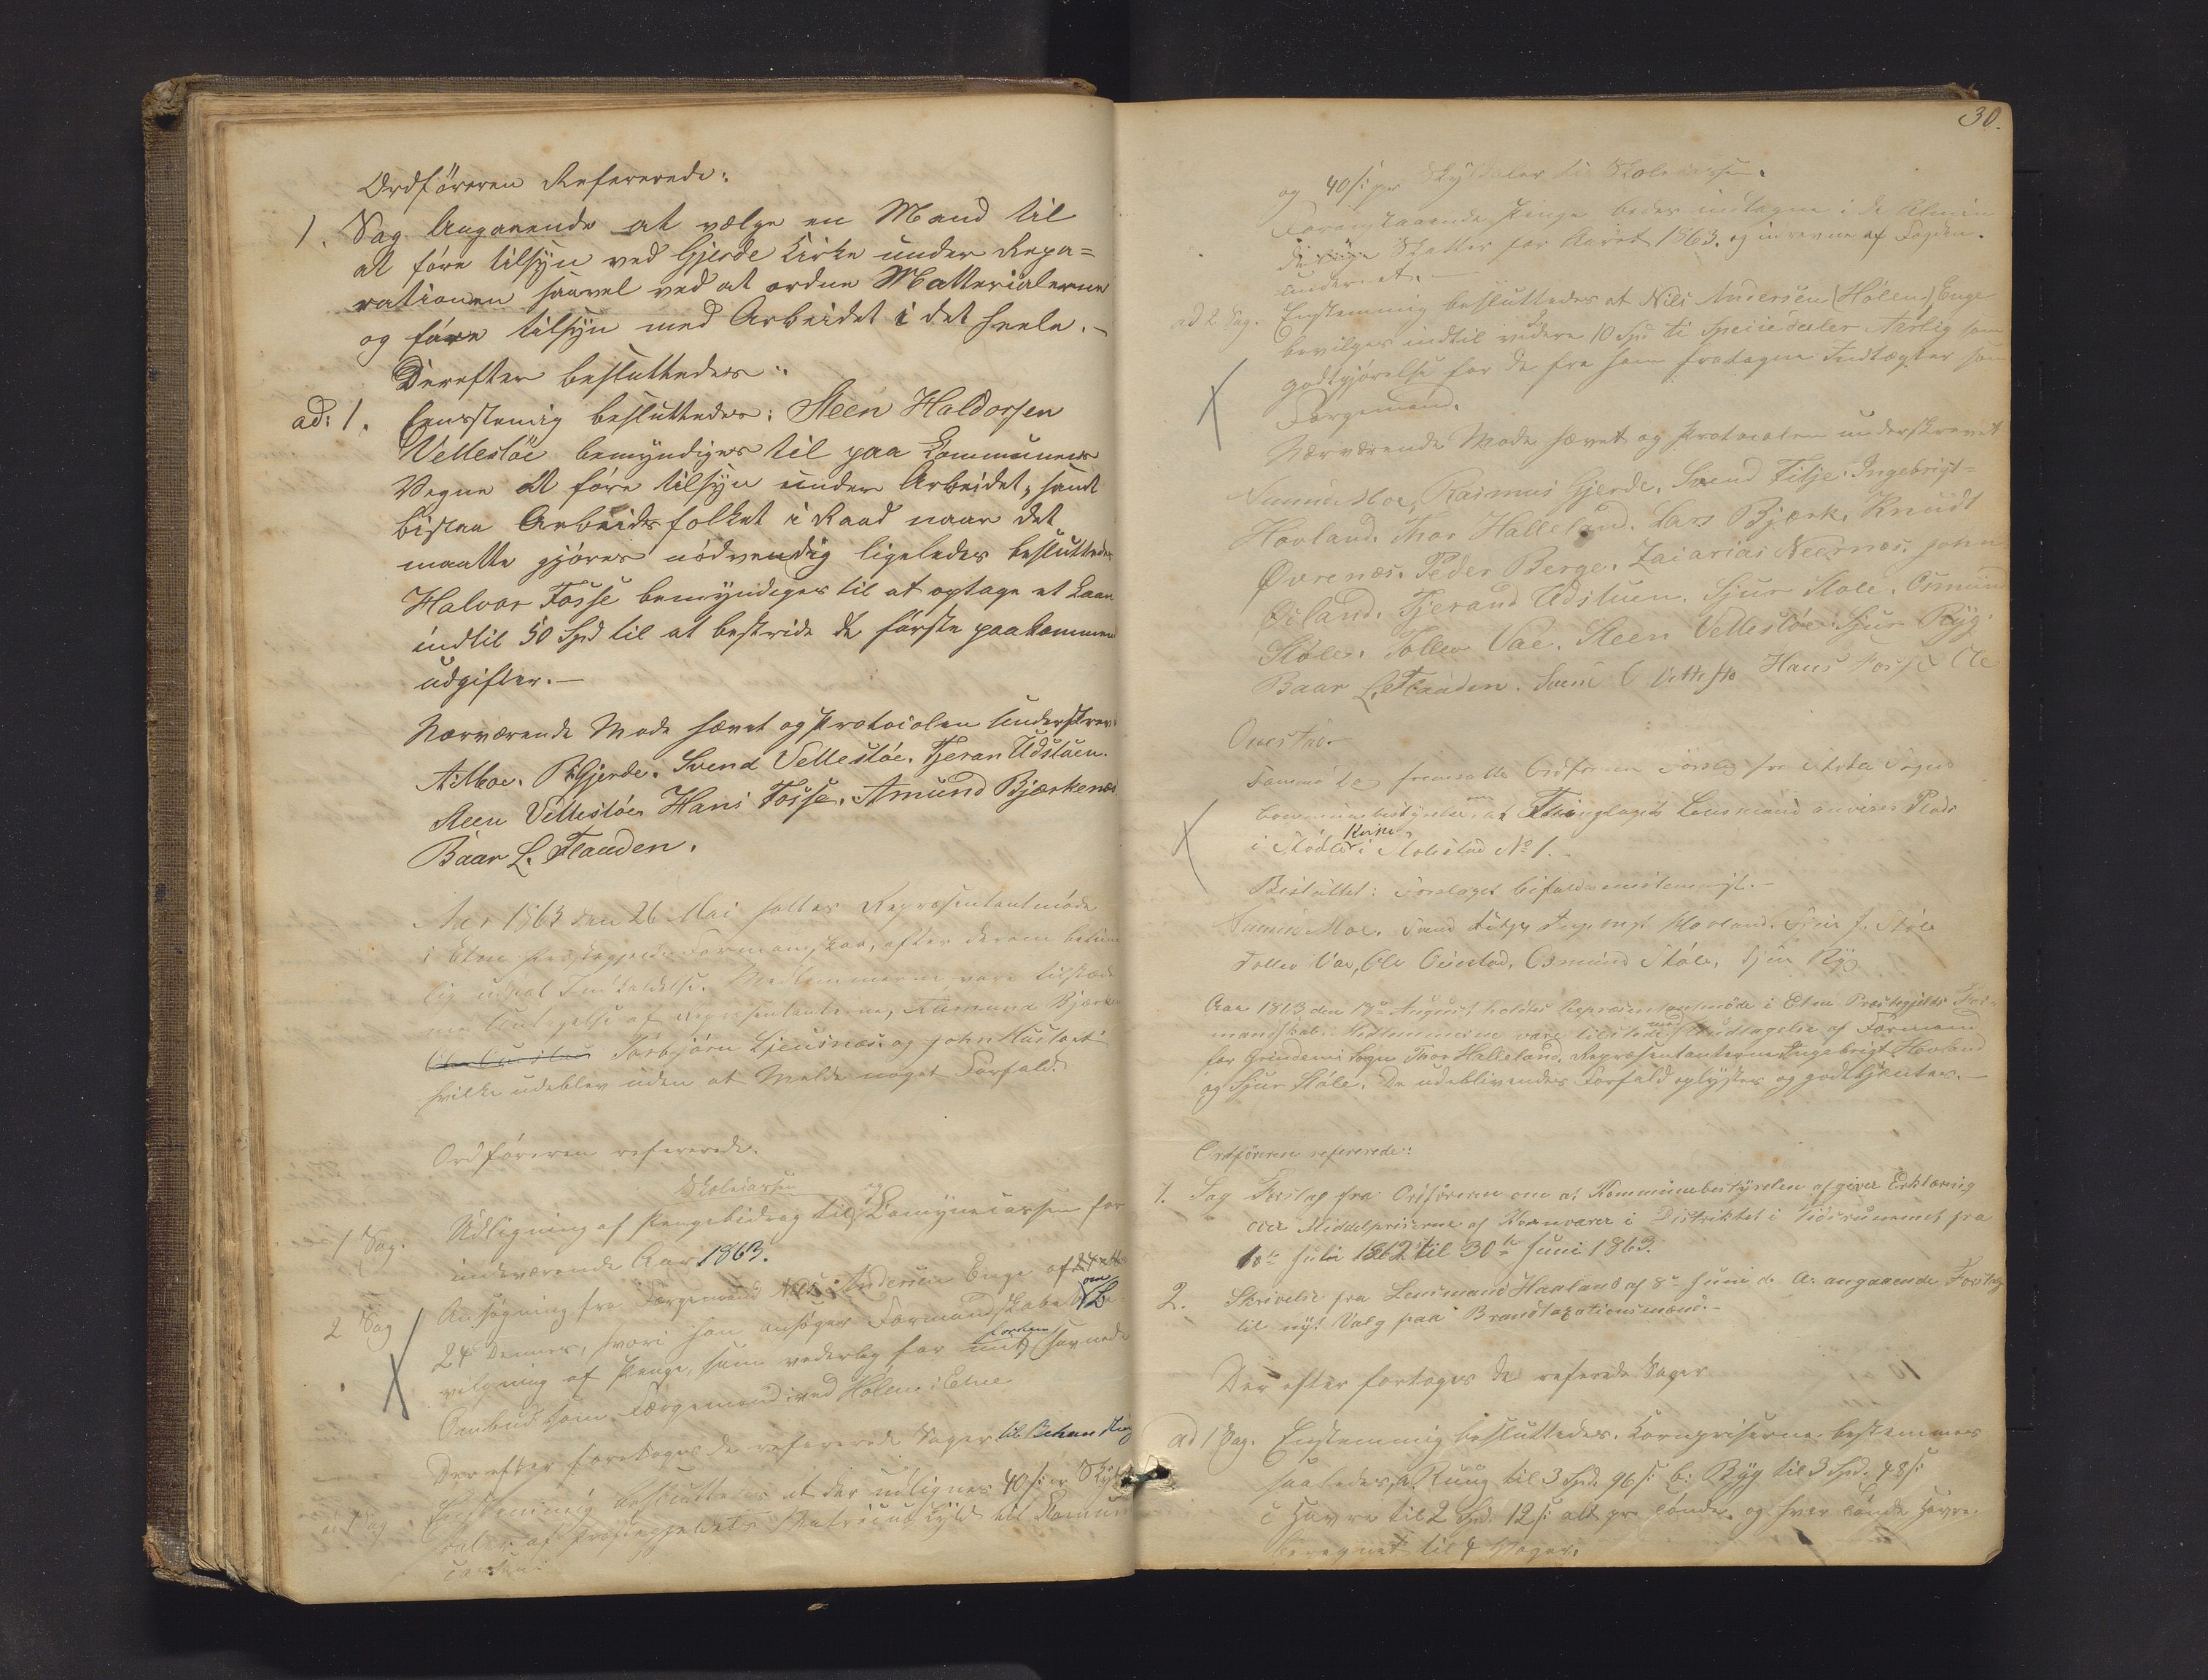 Ordföreren Refererede:
1. Sag Angaaende at vælge en Mand til
at före tilsyn ved Gjerde Kirke under Repa=
rationen saavel ved at ordne Matterialerne
og före tilsyn med Arbeidet i det heele.-
Derefter besluttedes:
ad: 1. Eensstemig besluttedes: Steen Haldorsen
Vellestöe bemyndiges til paa Communens
Vegne at före tilsyn under Arbeidet, samt
bistaa Arbeidsfolket i Raad naar det
maatte gjöres nödvendig ligeledes besluttedes
Halvor Fosse bemyndiges til at optage et Laan
indtil 50 Spd til at bestride de förste paakommen
udgifter.-
Nærværende Møde hævet og Protocolen Underskrev.
A: Moe. R. Gjerde. Svend Vellestöe. Tjeran Udstuen.
Steen Vellestöe. Hans Fosse. Amund Bjærkenæs
Baar L. Flaaden.
Aar 1863 den 26 Mai holtes Repræsentantmøde
i Etne Præstegjelds Formandskab, efter derom betime
lig udstæt Indkaldelse. Medlemmerne vare tilstæde
med Undtagelse af Repræsentanterne, Aamund Bjærken
Torbjørn Ljeusnæs og John Hustoet
hvilke udeblev uden at Melde noget Forfald.
Ordføreren refererede.
1 Sag. Udligning af Pengebidrag til Skolecassen og Comunecassen for
indeværende Aar 1863.
2 Sag Ansøgning fra Færgemand Nils Andersen Enge af
24 Dennes, hvori han ansøger Formandskabet om Be
vilgning af Penge, som vederlag for havnede
Ombud som Færgemand ved Hølen i Etne
Derefter foretoges de refererede Sager til Behandling
ad 1 Sag. Enstemmig besluttedes at der udlignes 40 s: pr Skyld
daler af Præstegjeldets Matriculskyld til Comune
cassen:
30.
og 40 s: pr Skylddaler til Skolecassen.
Foranstaaende Penge bedes indtagne i de Almin
delige Skatter for Aaret 1863. og indrevne af Fogden.
ad 2 Sag. Enstemmig besluttedes at Nils Andersen (Hølen) Enge
bevilges indtil videre 10 Spd ti Speciedaler Aarlig som
godtgjørelse for de fra ham fratagne Indtægter som
Færgemand.
Nærværende Møde hævet og Protocolen underskrevet
Amund Moe, Rasmus Gjerde. Svend Fitje. Ingebrigt=
Hovland. Thor Halleland. Lars Bjærk. Knudt
Øvrenæs. Peder Berge. Zacarias Neernæs. John
Øiland. Tjerand Udstuen. Sjur Støle. Osmund
Støle. Tollev Vae. Steen Vellestöe. Sjur Ryg.
Baar L. Flaaden. Svend Vellestø Hans Fosse Ole
Ouestad.
Samme Dag fremsatte Ordføreren Forslag for Etne Sogns
Communebestyrelse, at Thinglagets Lensmand anvises Plads
i Stødle Kirke i Stolestad No 1.
Besluttet: Forslaget bifaldes enstemmigt.-
Amund Moe. Svend Fitje Ingebrigt Hovland. Sjur J. Støle
Tollev Vae, Ole Ouestad, Osmund Støle, Sjur Ryg
Aar 1863 den 18de August holdtes Repræsentantmøde i Etne Præstegjelds For=
mandskab. Medlemmerne vare tilstede med Undtagelse af Formand
for Grindeims Sogn Thor Halleland, Repræsentanterne Ingebrigt Hovland
og Sjur Støle. De udeblivendes Forfald oplystes og godtkjentes.-
Ordføreren refererede:
1. Sag Forslag fra Ordføreren om at Kommunebestyrelsen afgiver Erklæring
over Middelpriserne af Kornvarer i Distriktet i Tidsrummet fra
1ste Juli 1862 til 30te Juni 1863.
2. Skrivelse fra Lensmand Haaland af 8de Juni d. A. angaaende Forslag
til nyt Valg paa Brandtaxationsmænd.-
Der efter fortoges de refererede Sager
ad 1 Sag. Enstemmig besluttedes. Kornpriserne bestemmes
saaledes, a. Ruug til 3 Spd. 96 s: b: Byg til 3 Spd. 48 s:
c Havre til 2 Spd. 12 s: alt pr. Tønde. og hver Tønde Havre.
beregnet til 4 Voger.